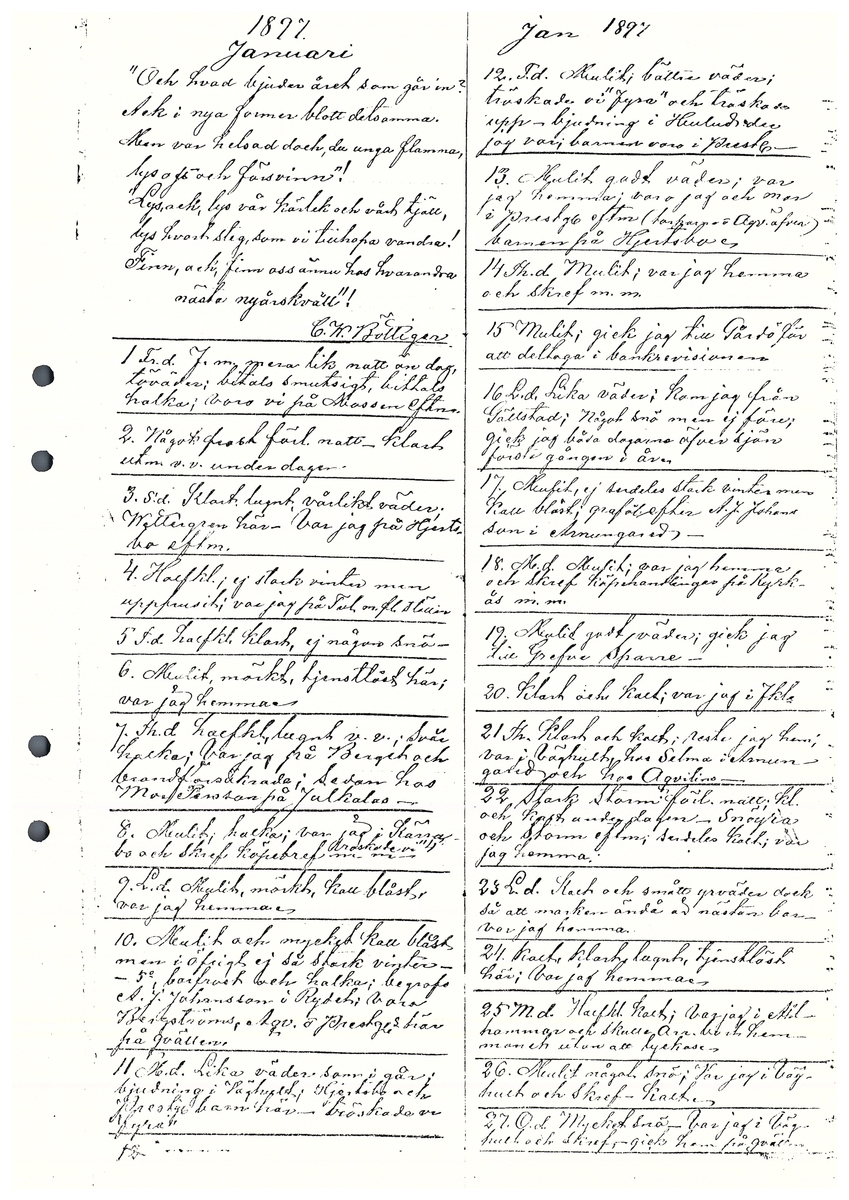 1897.
Januari
"Och hvad bjuder året som går in?
Ack i nya former blott detsamma.
Men var helsad doch, du unga flamma,
lys oss och försvinn"!
"Lys, ack, lys vår kärlek och vårt tjäll,
lys hvart steg, som vi tillhopa vandra!
Finn, ack, finn oss ännu hos hvarandra
nästa nyårskväll"!
C. W. Böttiger.
1 Fr.d. F. m. mera lik natt än dag,
töväder; bitals smutsigt, bittals
halka; voro vi på Mossen eftm.
2. Något frost förl. natt - klart
utm. v. v. under dagen.
3. S.d. Klart, lugnt, vårlikt väder.
Wettergren här - Var jag på Hjerts-
bo eftm.
4. Halfkl.; ej stark vinter men
uppfrusit; var jag på m. fl. ställen
5 T.d. halfkl. klart, ej någon snö -
6. Mulit, mörkt, tjenstlöst här;
var jag hemma
7. Th.d halfkl, lugnt v. v.; svår
halka; var jag på Berget och
brandförsäkrade; sedan hos
på Julkalas -
8. Mulit, halka; var jag i
bo och skref köpebref m. m.
tröskade vi
9. L.d. Mulit, mörkt, kall blåst,
var jag hemma
10. Mulit och mycket kall blåst
men i öfrigt ej så stark vinter -
- 5°, barfrost och halka; begrofs
A. J. Johansson i Rydet; voro
Bergströms, Aqv. o Prestgs här
på qvällen.
11 M.d. Lika väder som i går;
bjudning i Väghult; Hjertsbo och
Prestg barn här - tröskade vi
"fyra"
Jan 1897
12. T.d. Mulit; bättre väder;
tröskade vi "fyra" och tröskade
upp - bjudning i
jag var; barnen voro i Prestg -
13. Mulit godt väder; var
jag hemma; voro jag och mor
i Prestgd eftm ( Aqv. äfven)
barnen på Hjertsbo
14 Th.d Mulit; var jag hemma
och skref m. m.
15 Mulit; gick jag till Gårdö för
att deltaga i bankrevisionen
16 L.d. Lika väder; kom jag från
Gällstad; Något snö men ej före;
gick jag båda dagarne öfver sjön
första gången i år.
17. Mulit, ej serdeles stark vinter men
kall blåst; graföl efter A. J. Johans
son i Arnungared -
18. M.d. Mulit; var jag hemma
och skref köpehandlingar på Kyrk-
ås m. m.
19. Mulit godt väder; gick jag
till Grefve Sparre -
20. Klart och kallt; var jag i
21 Th. Klart och kallt; reste jag hem;
var i Väghult, hos Selma i Arnun-
gared och hos Aqvilins -
22. Stark storm förl. natt; kl.
och kallt under dagen - Snöyra
och storm eftm; serdeles kallt; var
jag hemma.
23 L.d. Kallt och smått yrväder dock
så att marken ändå är nästan bar -
var jag hemma.
24. Kallt, klart, lugnt, tjenstlöst
här; var jag hemma
25 M.d. Halfkl. kallt; var jag i
hammar och skulle hem-
manet utan att lyckas
26. Mulit något snö; var jag i Väg-
hult och skref - kallt
27. O.d. Mycket snö - Var jag i Väg-
hult och skref, - gick hem på qvällen